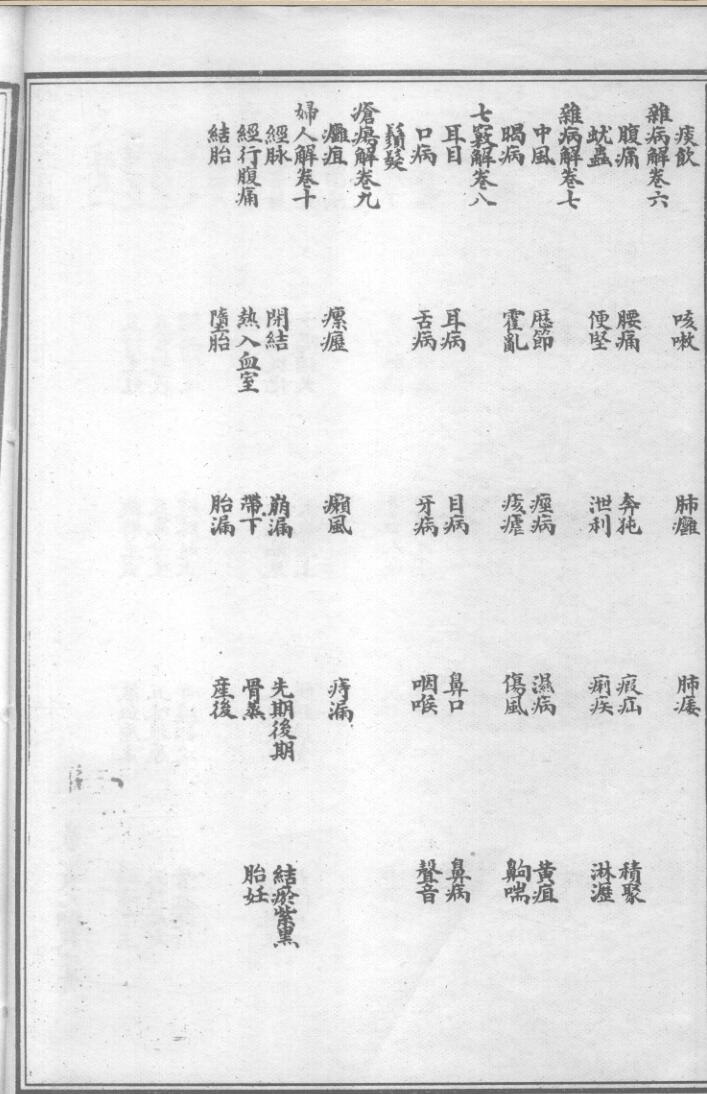 痰飲　咳嗽　肺癰　肺痿
雜病解卷六
腹痛　腰痛　奔㹠　瘕疝　積聚
蚘蟲　便堅　泄利　痢疾　淋瀝
雜病解卷七
中風　歷節　痙病　濕病　黃疸
暍病　霍亂　痎瘧　傷風　齁喘
七竅解卷八
耳目　耳病　目病　鼻口　鼻病
口病　舌病　牙病　咽喉　聲音
鬚髮
瘡瘍解卷九
癰疽　瘰癧　癩風　痔漏
婦人解卷十
經脉　閉結　崩漏　先期後期　結瘀紫黑
經行腹痛　熱入血室　帶下　骨蒸　胎妊
結胎　墮胎　胎漏　產後